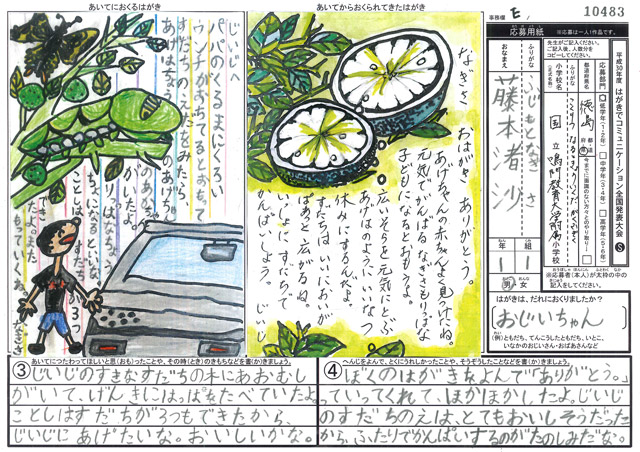 あいてにおくるはがき
じいじへ
パパのくるまにくろい
ウンチがおちてるとおもって
すだちのえだをみたら、
あげはちょうの
あいてからおくられてきたはがき
なぎさ
おはがき ありがとう。
あげちゃんの赤ちゃんよく見つけたね。
元気でがんばるなぎさもりっぱな
子どもになるとおもうよ。
広いそらを元気にとぶ
あげはのように いいなつ
休みにするんだよ。
すだちは いいにおいが
ぱあと広がるね。
いっしょに すだちで
かんぱいしよう。 じいじ
事務欄
E,
10483
応募用紙
※応募は一人1作品です。
平成30年度 はがきでコミュニケーション全国発表大会 S
応募部門
低学年(1・2年)
中学年(3・4年)
高学年(5・6年)
都道府県名
徳島
小学校名
国立鳴門教育大学附属小学校
ふりがな
ふじもとなぎさ
おなまえ
藤本渚沙
組
1
男・女
※応募者(本人)が太枠の中の
記入してください。
はがきは、だれにおくりましたか？
(おじいちゃん)
(例)ともだち、てんこうしたともだち、いとこ、
いなかのおじいさん・おばあさんなど
あいてにつたわってほしいと思(おも)ったことや、その時(とき)のきもちなどを書(か)きましょう。
③じいじのすきなすだちの木にあおむし
がいて、げんきにはっぱをたべていたよ。
ことしはすだちが3つもできたから、
じいじにあげたいな。おいしいかな。
へんじをよんで、とくにうれしかったことや、そうぞうしたことなどを書(か)きましょう。
④ぼくのはがきをよんで「ありがとう。」
っていってくれて、ほかほかしたよ。じいじ
のすだちのえは、とてもおいしそうだった
から、ふたりでかんぱいするのがたのしみだな。